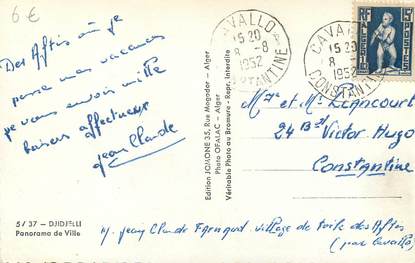 6 €
Des Aftis où je
passe mes vacances
je vous envoie mille
baisers affectueux
Jean Claude
5/37 — DJIDJELLI
Panorama de Ville
Edition JOMONE 35, Rue Mogador - Alger
Photo OFALAC - Alger
Véritable Photo au Bromure - Repr. Interdite
CAVALLO
15 20
8 -8
1952
CONSTANTINE
CAVALLO
15 20
8
1952
CONSTANTINE
Mme et Mr
24 Bd Victor Hugo
Constantine
M. Jean Claude village de toile des Aftis
(par Cavallo)